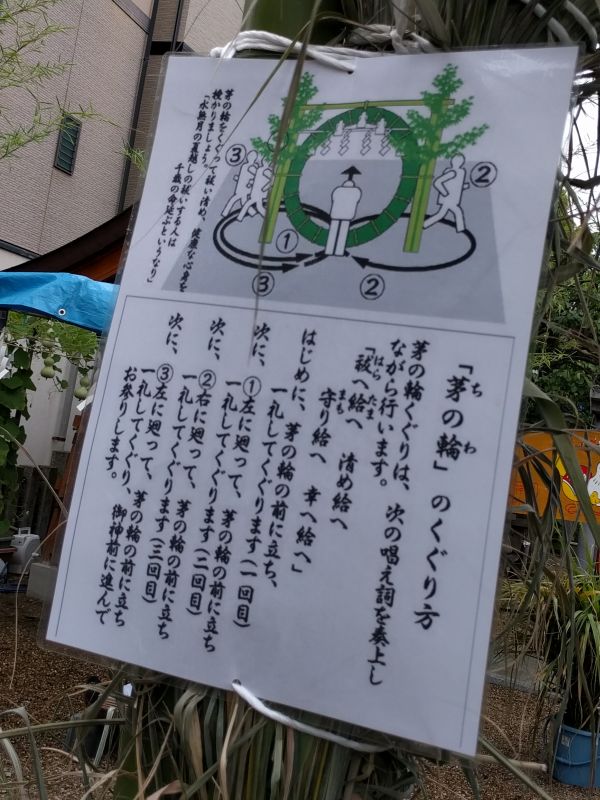 茅の輪をくぐって祓い清め、健康な心身を
授かりましょう。
「水無月の夏越しの祓いする人は
千歳の命延ぶというなり」
③
②
①
③
②
「茅の輪」のくぐり方
ちわ
茅の輪くぐりは、次の唱え詞を奏上し
ながら行います。
「祓へ給へ 清め給へ
はらたま
守り給へ 幸へ給へ」
まも
はじめに、茅の輪の前に立ち、
一礼してくぐります(一回目)
次に、①左に廻って、茅の輪の前に立ち
一礼してくぐります(二回目)
次に、②右に廻って、茅の輪の前に立ち
一礼してくぐります(三回目)
次に、③左に廻って、茅の輪の前に立ち
一礼してくぐり、御神前に進んで
お参りします。